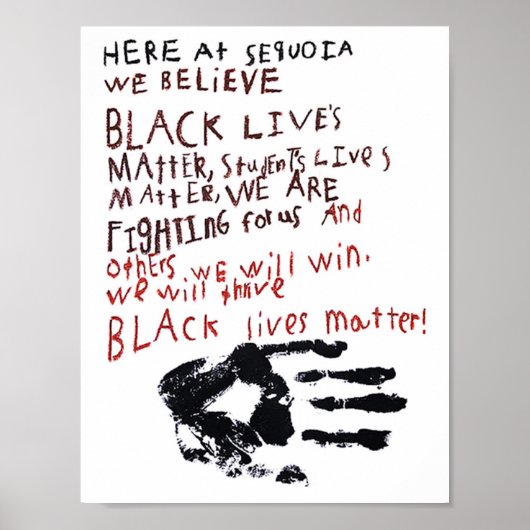 HERE At SEQUOIA
WE BELiEVE
BLACK LIVE'S
MATTER, StudENt's LIVES
MATTER, WE ARE
FIGHTING foR us ANd
OthERS WE Will WiN.
WE Will thrive
BLACK lives matter!